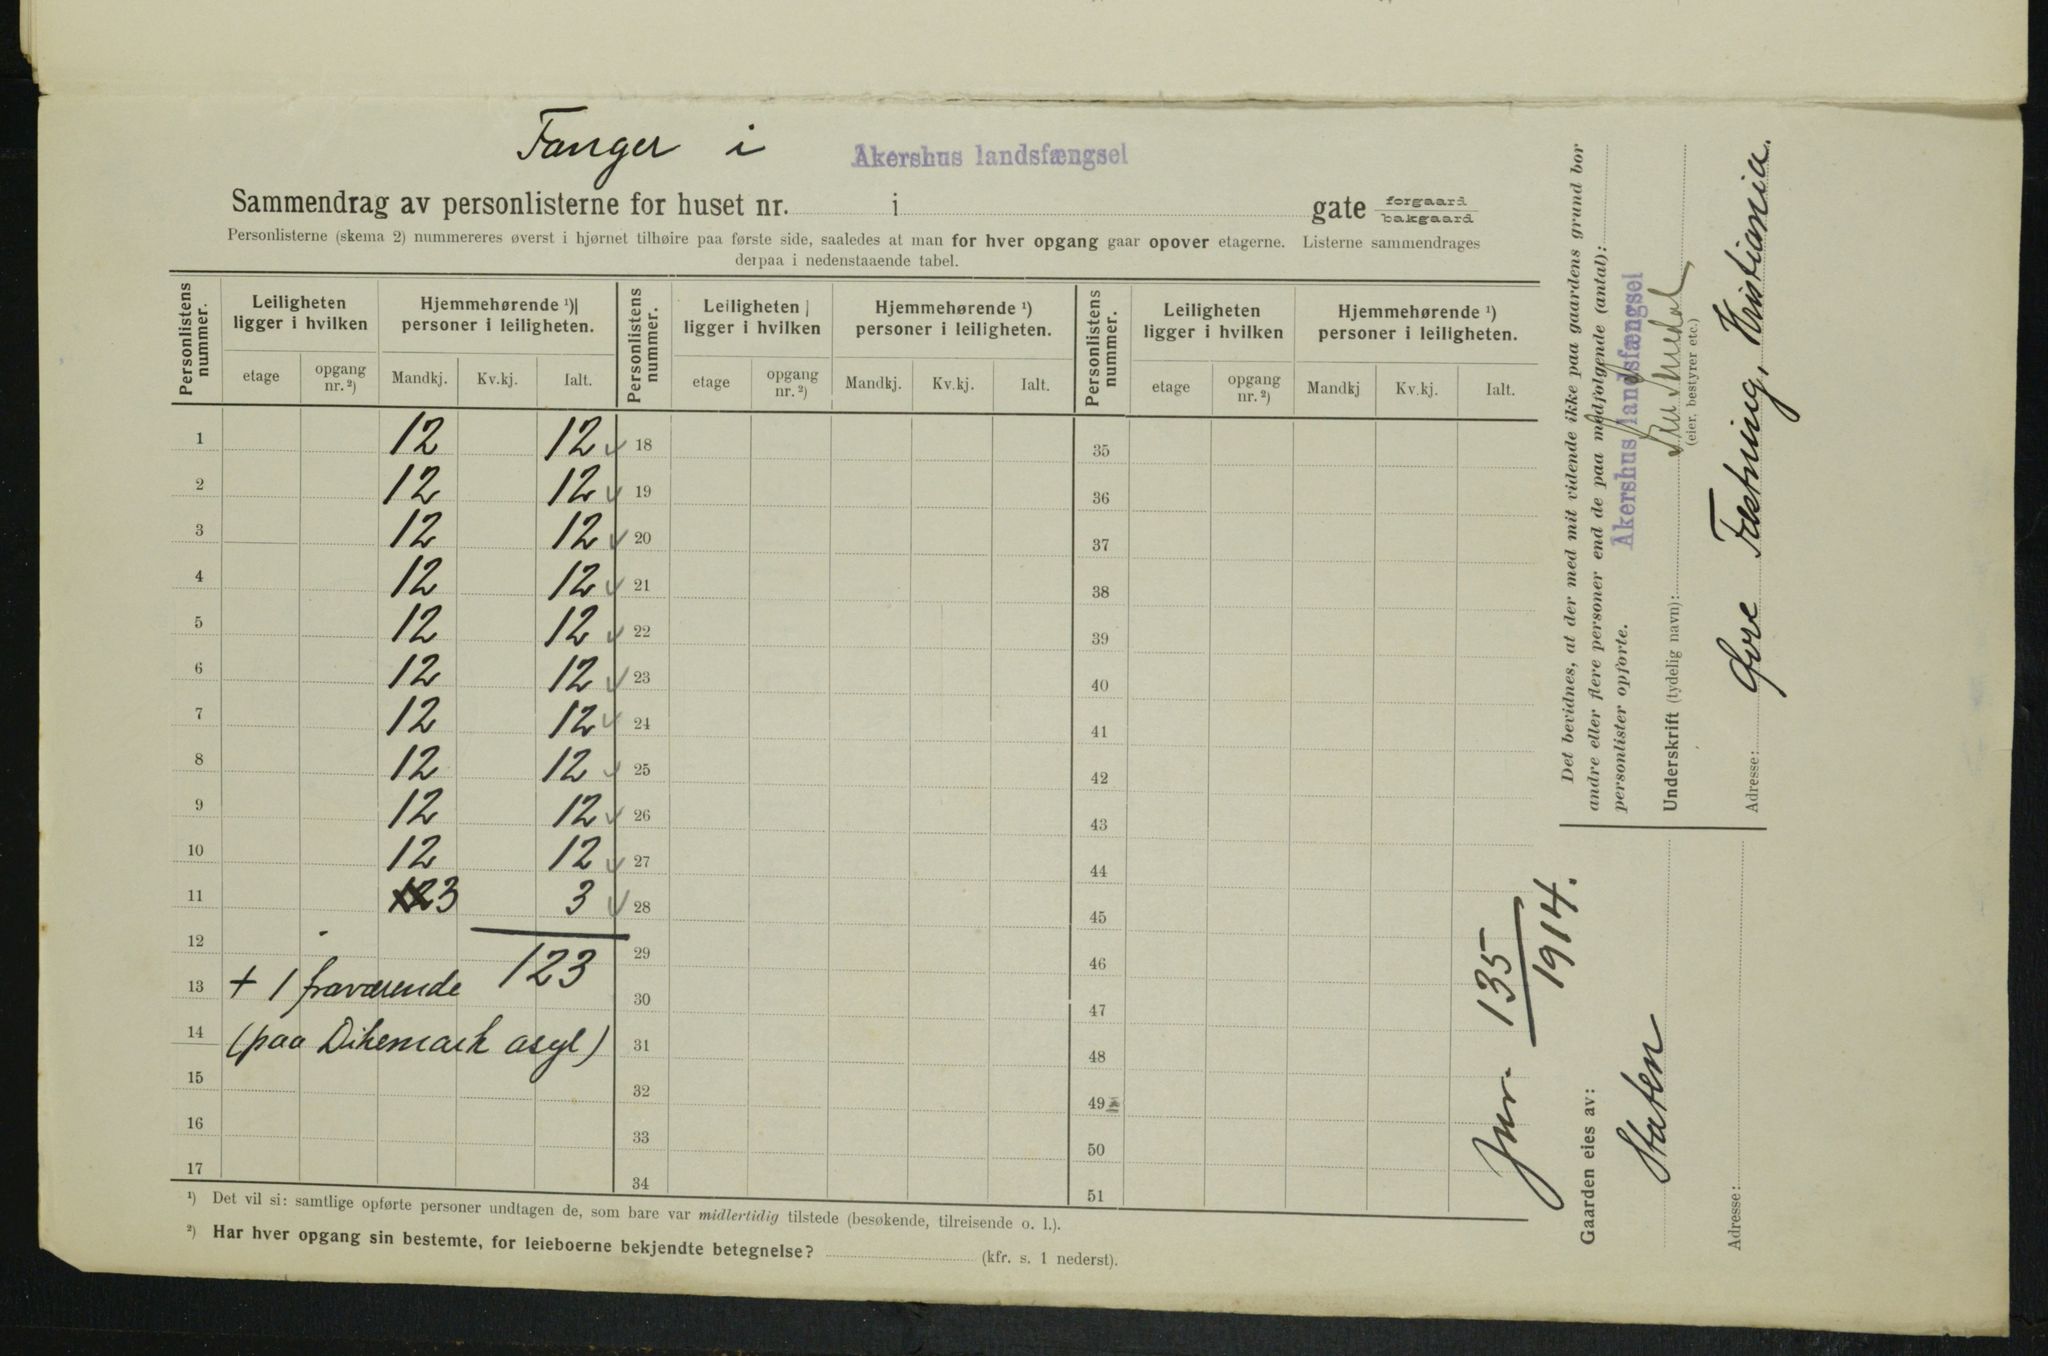 Fanger i Akershus landsfængsel
Sammendrag av personlisterne for huset nr. i gate forgaard bakgaard
Personlisterne (skema 2) nummereres øverst i hjørnet tilhøire paa første side, saaledes at man for hver opgang gaar opover etagerne. Listerne sammendrages
derpaa i nedenstaaende tabel.
Personlistens nummer. Leiligheten ligger i hvilken Hjemmehørende ¹) personer i leiligheten. Personlistens nummer. Leiligheten ligger i hvilken Hjemmehørende ¹) personer i leiligheten. Personlistens nummer. Leiligheten ligger i hvilken Hjemmehørende ¹) personer i leiligheten.
etage opgang nr. ²) Mandkj. Kv.kj. Ialt. etage opgang nr. ²) Mandkj. Kv.kj. Ialt. etage opgang nr. ²) Mandkj Kv.kj. Ialt.
1 12 12 18 35
2 12 12 19 36
3 12 12 20 37
4 12 12 21 38
5 12 12 22 39
6 12 12 23 40
7 12 12 24 41
8 12 12 25 42
9 12 12 26 43
10 12 12 27 44
11 3 3 28 45
12 123 29 46
13 + 1 fraværende 30 47
14 (paa Dikemark asyl) 31 48
15 32 49
16 33 50
17 34 51
¹) Det vil si: samtlige opførte personer undtagen de, som bare var midlertidig tilstede (besøkende, tilreisende o. l.).
²) Har hver opgang sin bestemte, for leieboerne bekjendte betegnelse? (kfr. s. 1 nederst).
Jnr. 135/1914.
Det bevidnes, at der med mit vidende ikke paa gaardens grund bor
andre eller flere personer end de paa medfølgende (antal):
personlister opførte. Akershus landsfængsel
Underskrift (tydelig navn):
(eier, bestyrer etc.)
Adresse: Øvre Fæstning, Kristiania.
Gaarden eies av:
Staten
Adresse: